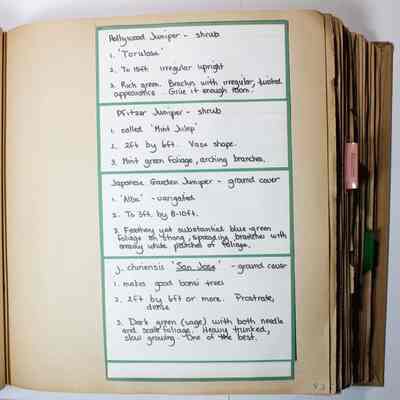 Hollywood Juniper - shrub
1. "Torulosa"
2. To 15ft irregular upright
3. Rich green. Branchn with irregular, twisted
appearance. Give it enough room.
Pfitzer Juniper - shrub
1. called "Mint Julep"
2. 2ft by 6ft. Vase shape.
3. Mint green foliage, arching branches.
Japanese Garden Juniper - ground cover
1. "Alba" - varigated
2. To 3ft. by 8-10ft.
3. Feathery yet substantial blue-green
foliage on strong, spreading branches with
creamy white patches of foliage.
J. chinensis "San Jose" - ground cover
1. makes good bonsi trees
2. 2ft by 6ft or more. Prostrate,
dense
3. Dark green (sage) with both needle
and scale foliage. Heavy trunked,
slow growing. One of the best.